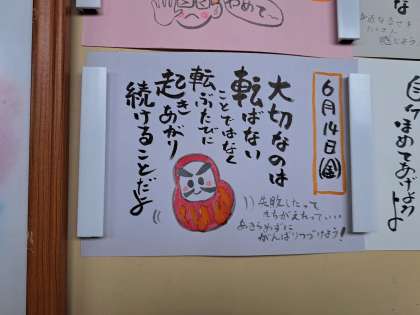 やめて〜
6月14日(金)
大切なのは
転ばない
ことではなく
転ぶたびに
起きあがり
続けることだよ
失敗したって
まちがえたっていい
あきらめずに
がんばりつづけよう!
ほめてあげよう